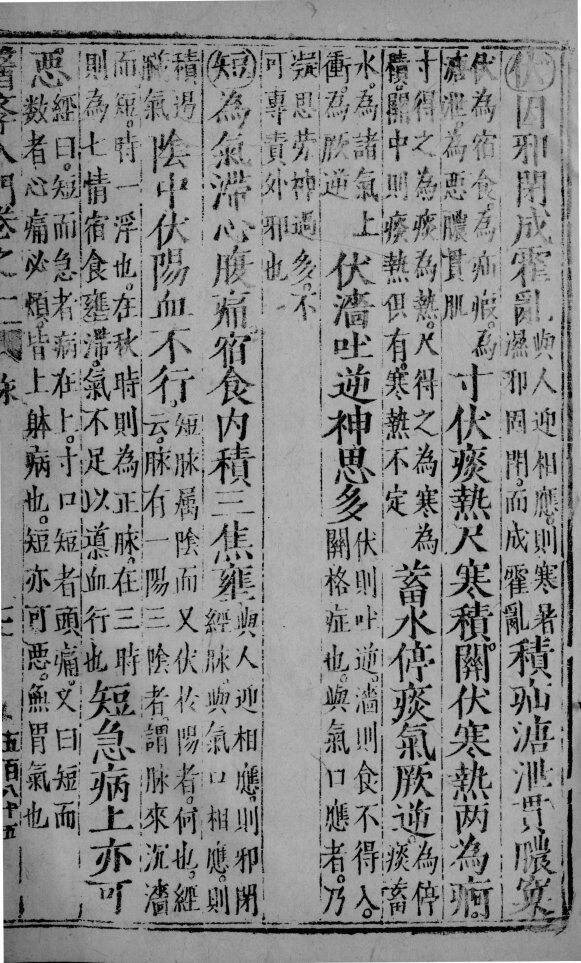 伏因邪閉成霍亂
與人迎相應則寒暑
濕邪固閉而成霍亂
積疝溏泄貫膿窠
伏為宿食為疝瘕為
溏泄為惡膿貫肌
寸伏痰熱尺寒積關伏寒熱兩為痾
寸得之為痰為熱尺得之為寒為
積關中則痰熱俱有寒熱不定
蓄水停痰氣厥逆
為停
痰畜
水為諸氣上
衝為厥逆
伏濇吐逆神思多
伏則吐逆濇則食不得入
關格症也與氣口應者乃
凝思勞神過多不
可專責外邪也
短為氣滯心腹痛宿食內積三焦壅
與人迎相應則邪閉
經脉與氣口相應則
積遏
臟氣
陰中伏陽血不行
短脉屬陰而又伏於陽者何也經
云脉有一陽三陰者謂脉來沉濇
而短時一浮也在秋時則為正脉在三時
則為七情宿食壅滯氣不足以導血行也
短急病上亦可
惡
經曰短而急者病在上寸口短者頭痛又曰短而
數者心痛必煩皆上躰病也短亦可惡無胃氣也
入門卷之一
脉
五百八十五